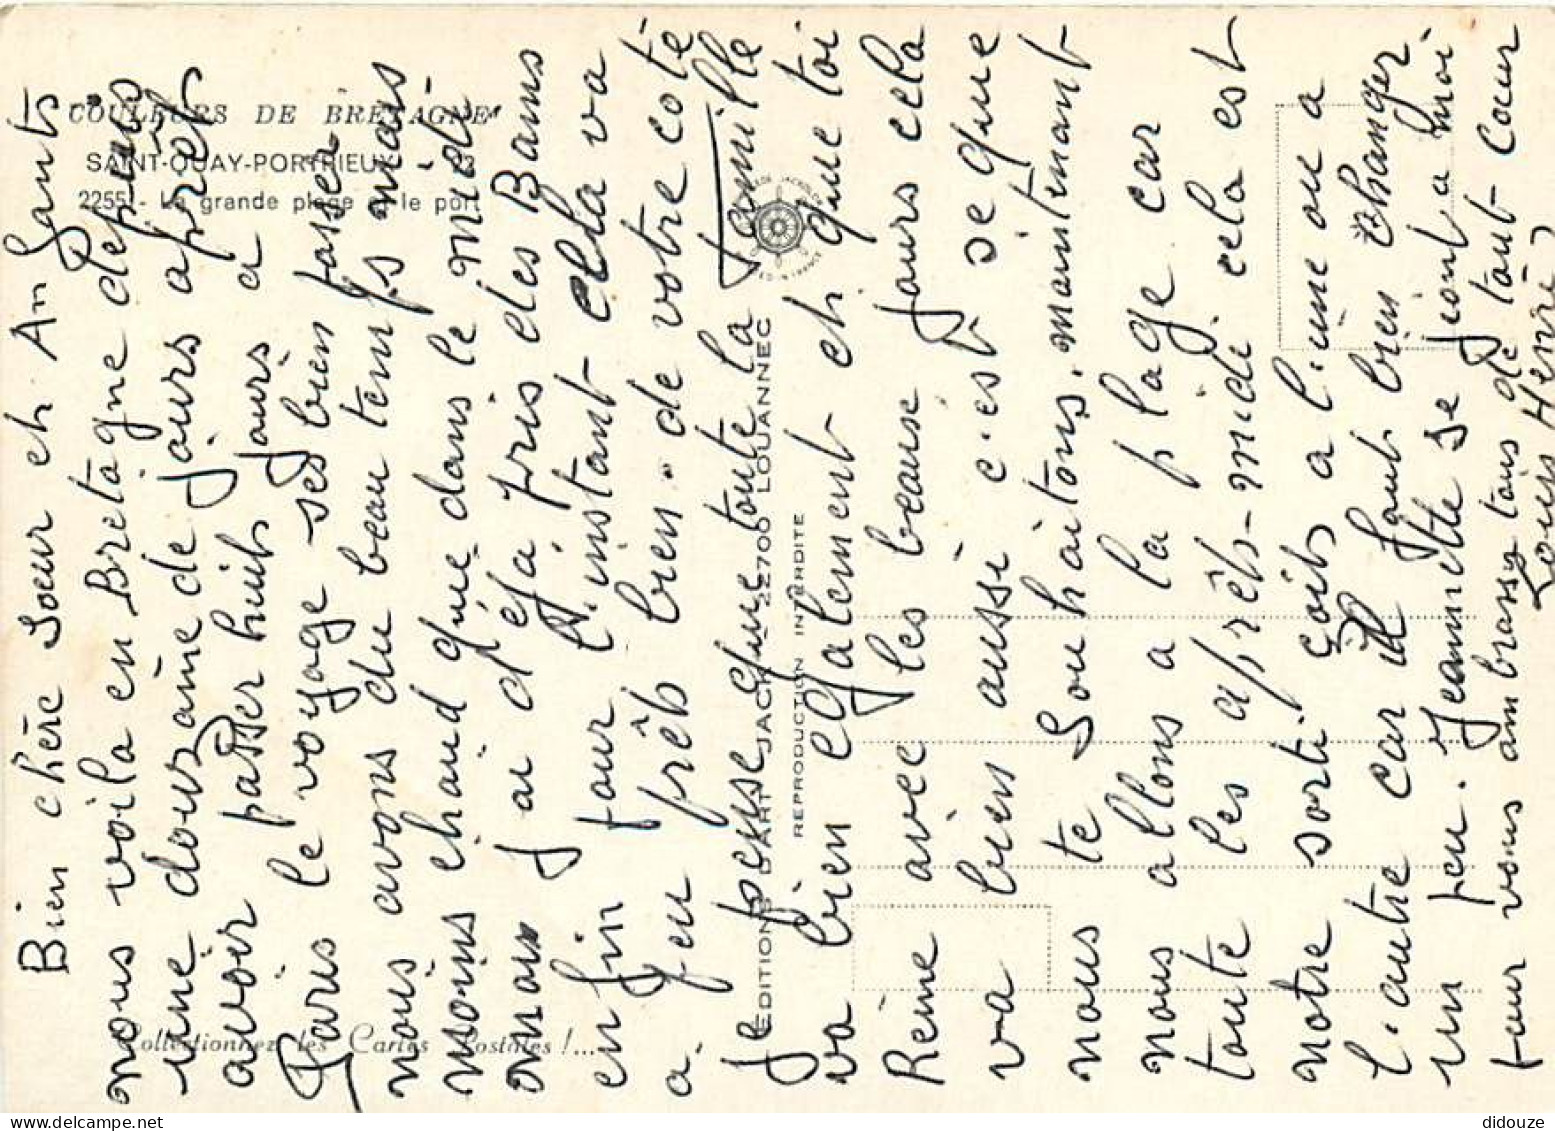 "COULEURS DE BRETAGNE"
SAINT-QUAY-PORTRIEUX
2255 - La grande plage et le port
EDITIONS D'ART JACK - 22700 LOUANNEC
REPRODUCTION INTERDITE
Collectionnez les Cartes Postales !...
Bien chère Soeur et An Gants
nous voila en Bretagne depuis
une douzaine de jours apret
avoir passer huits jours a
Paris le voyage ses bien passer
nous avons du beau temps mais
moins chaud que dans le midi
mon J ai déja pris des Bains
enfin pour l'instant cela va
a peu prêts bien. de votre coté
Je pense que toute la famille
va bien egalement et que toi
Réme avec les beause jours cela
va bien aussi c'est se que
nous te Souhaitons. maintenant
nous allons a la plage car
toute les après-midi cela est
notre sorti soits a l'une ou a
l'autre car il faut bien changer
un peu. Jeannette se joint a moi
pour vous ambrassy tous de tout coeur
Louis Henri
didouze